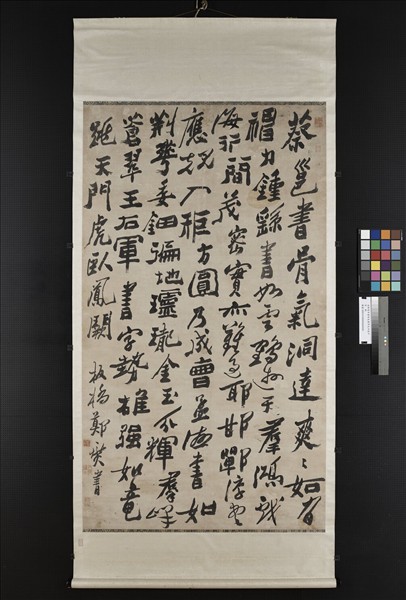 蔡邕書骨氣洞達爽爽如有
神力鍾繇書如雲鵠遊天羣鴻戲
海行間茂密實亦難過耶邯鄲淳書
應規入矩方圓乃成曹孟德書如
荆華委鈿遍地金玉分輝羣峰
蒼翠王右軍書字勢雄强如龍
跳天門虎臥鳳闕 板橋鄭燮書